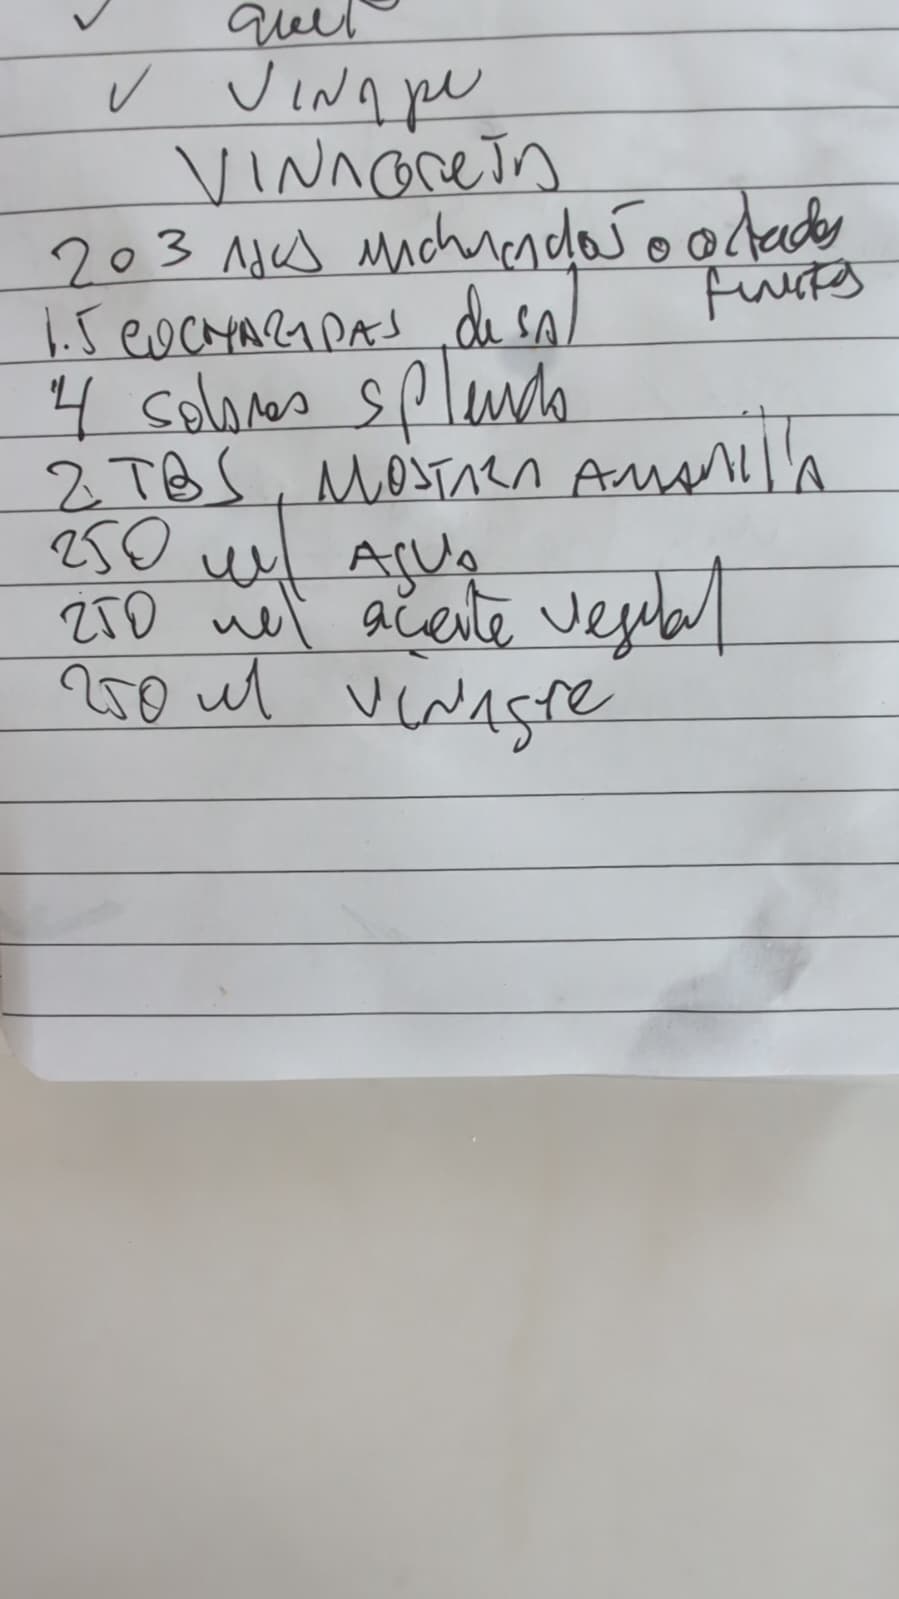 ✓ 
✓ Vinagre
VINAGRETA
2 o 3 ajos machacados o cortados
finitos
1.5 COCHARADAS de sal
4 sobres splenda
2 TBS MOSTAZA AMARILLA
250 ml AGUA
250 ml aceite vegetal
250 ml vinagre